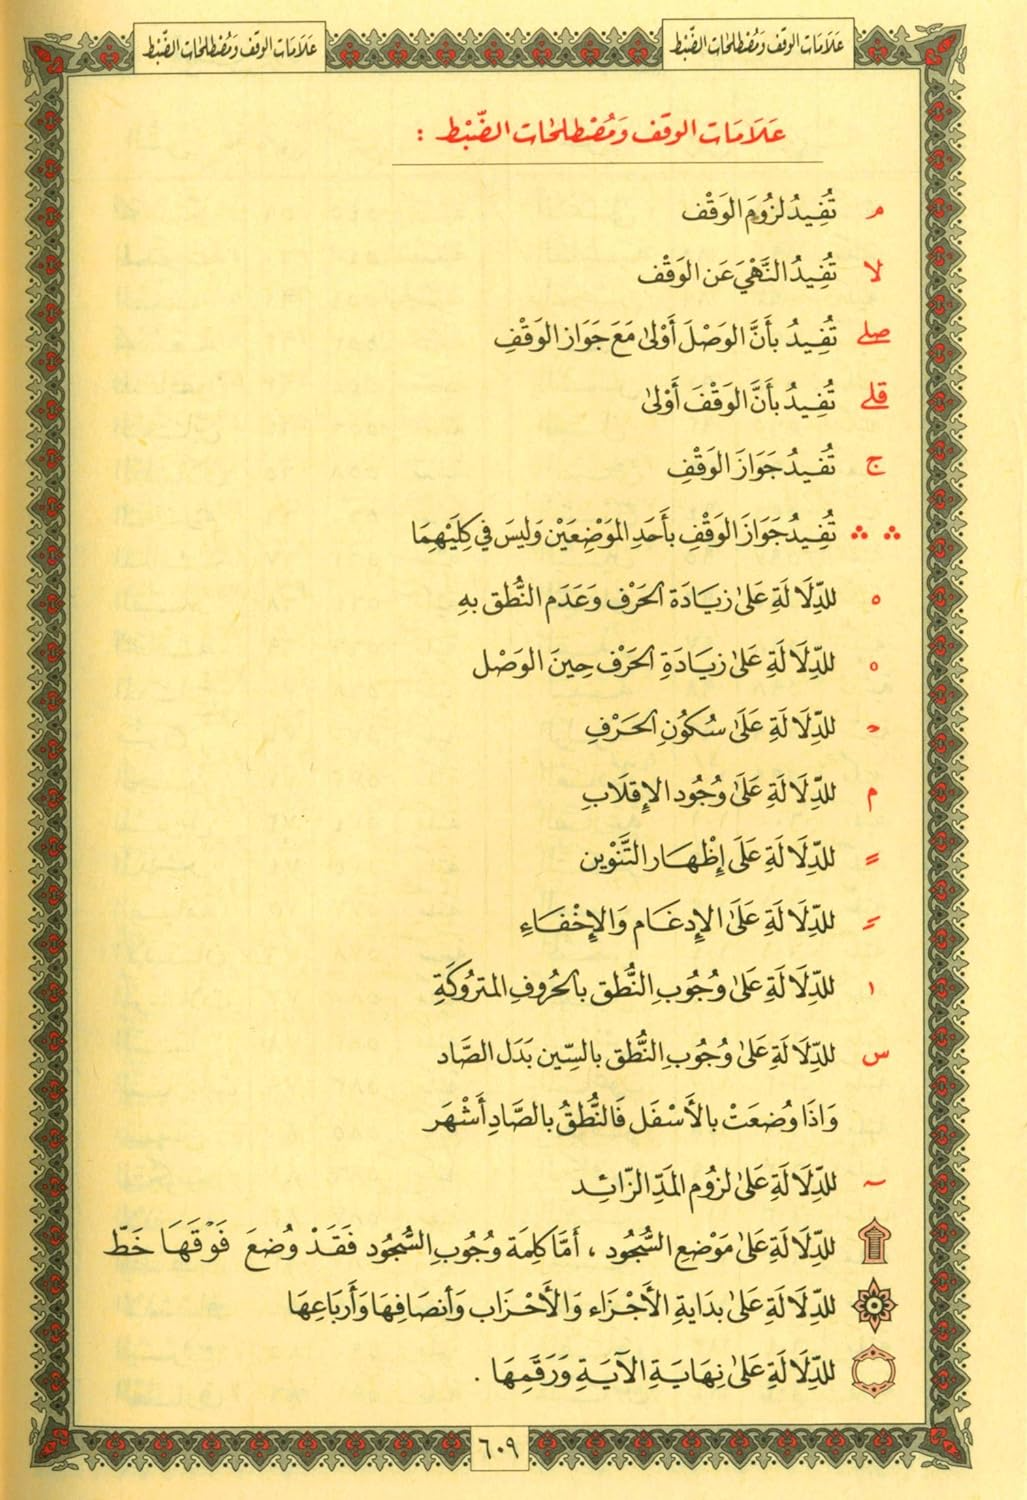 عَلَامَات الوَقف وَمُصْطَلَحَات الضَّبْط
عَلَامَات الوَقف وَمُصْطَلَحَات الضَّبْط
عَلَامَات الوَقف وَمُصْطَلَحَات الضَّبْط :
مـ تُفِيدُ لزُومَ الوَقْف
لا تُفِيدُ النَّهْيَ عَن الوَقْف
صلے تُفِيدُ بأَنَّ الوَصْلَ أَوْلىٰ مَعَ جَوَاز الوَقْفِ
قلے تُفِيدُ بأَنَّ الوَقْفَ أَوْلىٰ
ج تُفيدُ جَوَازَ الوَقْفِ
∴ ∴ تُفِيدُ جَوَازَ الوَقْفِ بأَحَدِ المَوْضِعَيْن وَليسَ في كِلَيْهِمَا
ه للدِّلَالَةِ عَلىٰ زيَادَة الحَرْف وَعَدَم النُّطق بهِ
ه للدِّلَالَةِ عَلىٰ زيَادَةِ الحَرْف حِينَ الوَصْل
حـ للدِّلَالَةِ عَلَىٰ سُكُونِ الحَرْفِ
م للدِّلَالَةِ عَلَىٰ وُجُود الإقلَابِ
ـً للدِّلَالَةِ عَلَى إظْهَار التَّنْوين
ـً للدِّلَالَةِ عَلَىٰ الإدغَام وَالإخْفَاءِ
ا للدِّلَالَةِ عَلىٰ وُجُوبِ النُّطق بالحُروفِ المَترُوكَةِ
س للدِّلَالَةِ عَلىٰ وُجُوبِ النُّطق بالسِّين بَدَل الصَّاد
وَاذَا وُضعَتْ بالأَسْفَل فَالنُّطقُ بالصَّادِ أَشْهَر
~ للدِّلَالَةِ عَلىٰ لزُوم المَدِّ الزَّائِد
للدِّلَالَةِ عَلىٰ مَوْضع السُّجُود ، أَمَّا كلِمَة وُجُوبِ السُّجُود فَقَدْ وُضعَ فَوْقَهَا خَطّ
للدِّلَالَةِ عَلىٰ بدَايةِ الأَجْزَاء وَالأَحْزَاب وَأَنصَافِهَا وَأَربَاعِهَا
للدِّلَالَةِ عَلىٰ نِهَايَةِ الآيَةِ وَرَقَمِهَا .
٦٠٩